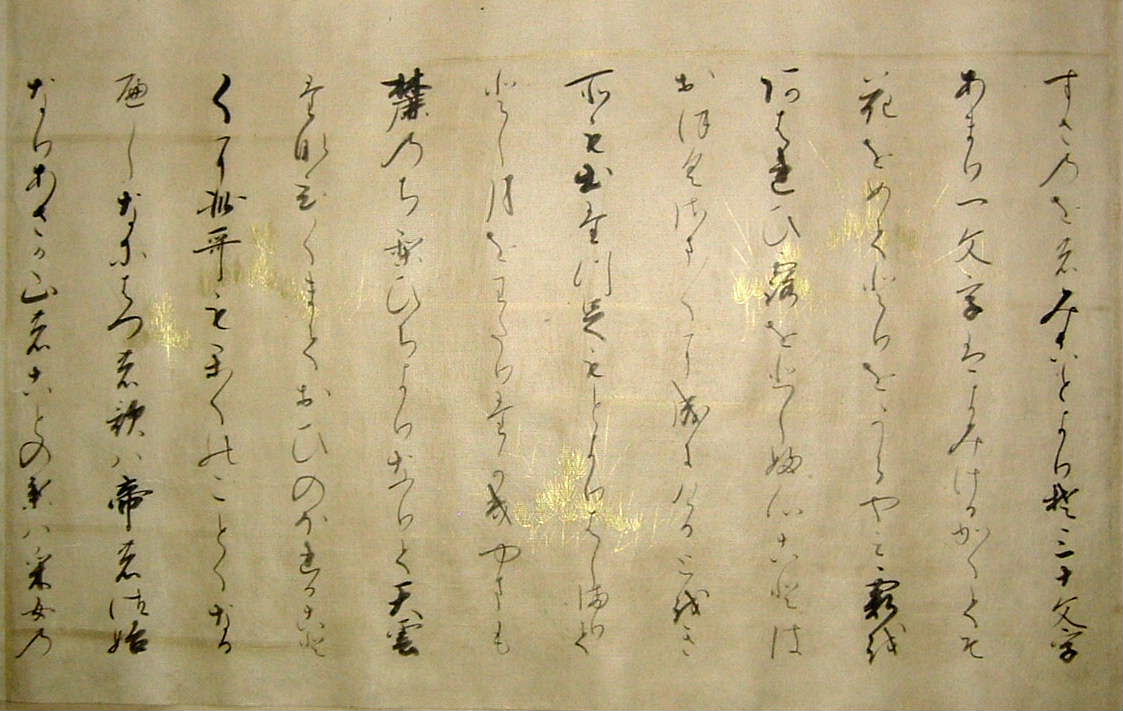 すさのをのみことよりそ三十文字
あまり一文字はよみけるかくてそ
花をめてとりをうらやみ霞を
あはれひ露をかなしふ心ことは
おほくさま〱に成にけるとをき
所も出たつ足もとよりはしまりて
とし月をわたりたかきやまも
麓のちりひちよりなりて天雲
たなひくまておひのほれること
くに此哥もかくのことくなる
へしなにはつの歌ハ帝の御始
なりあさか山のことの葉ハ采女の